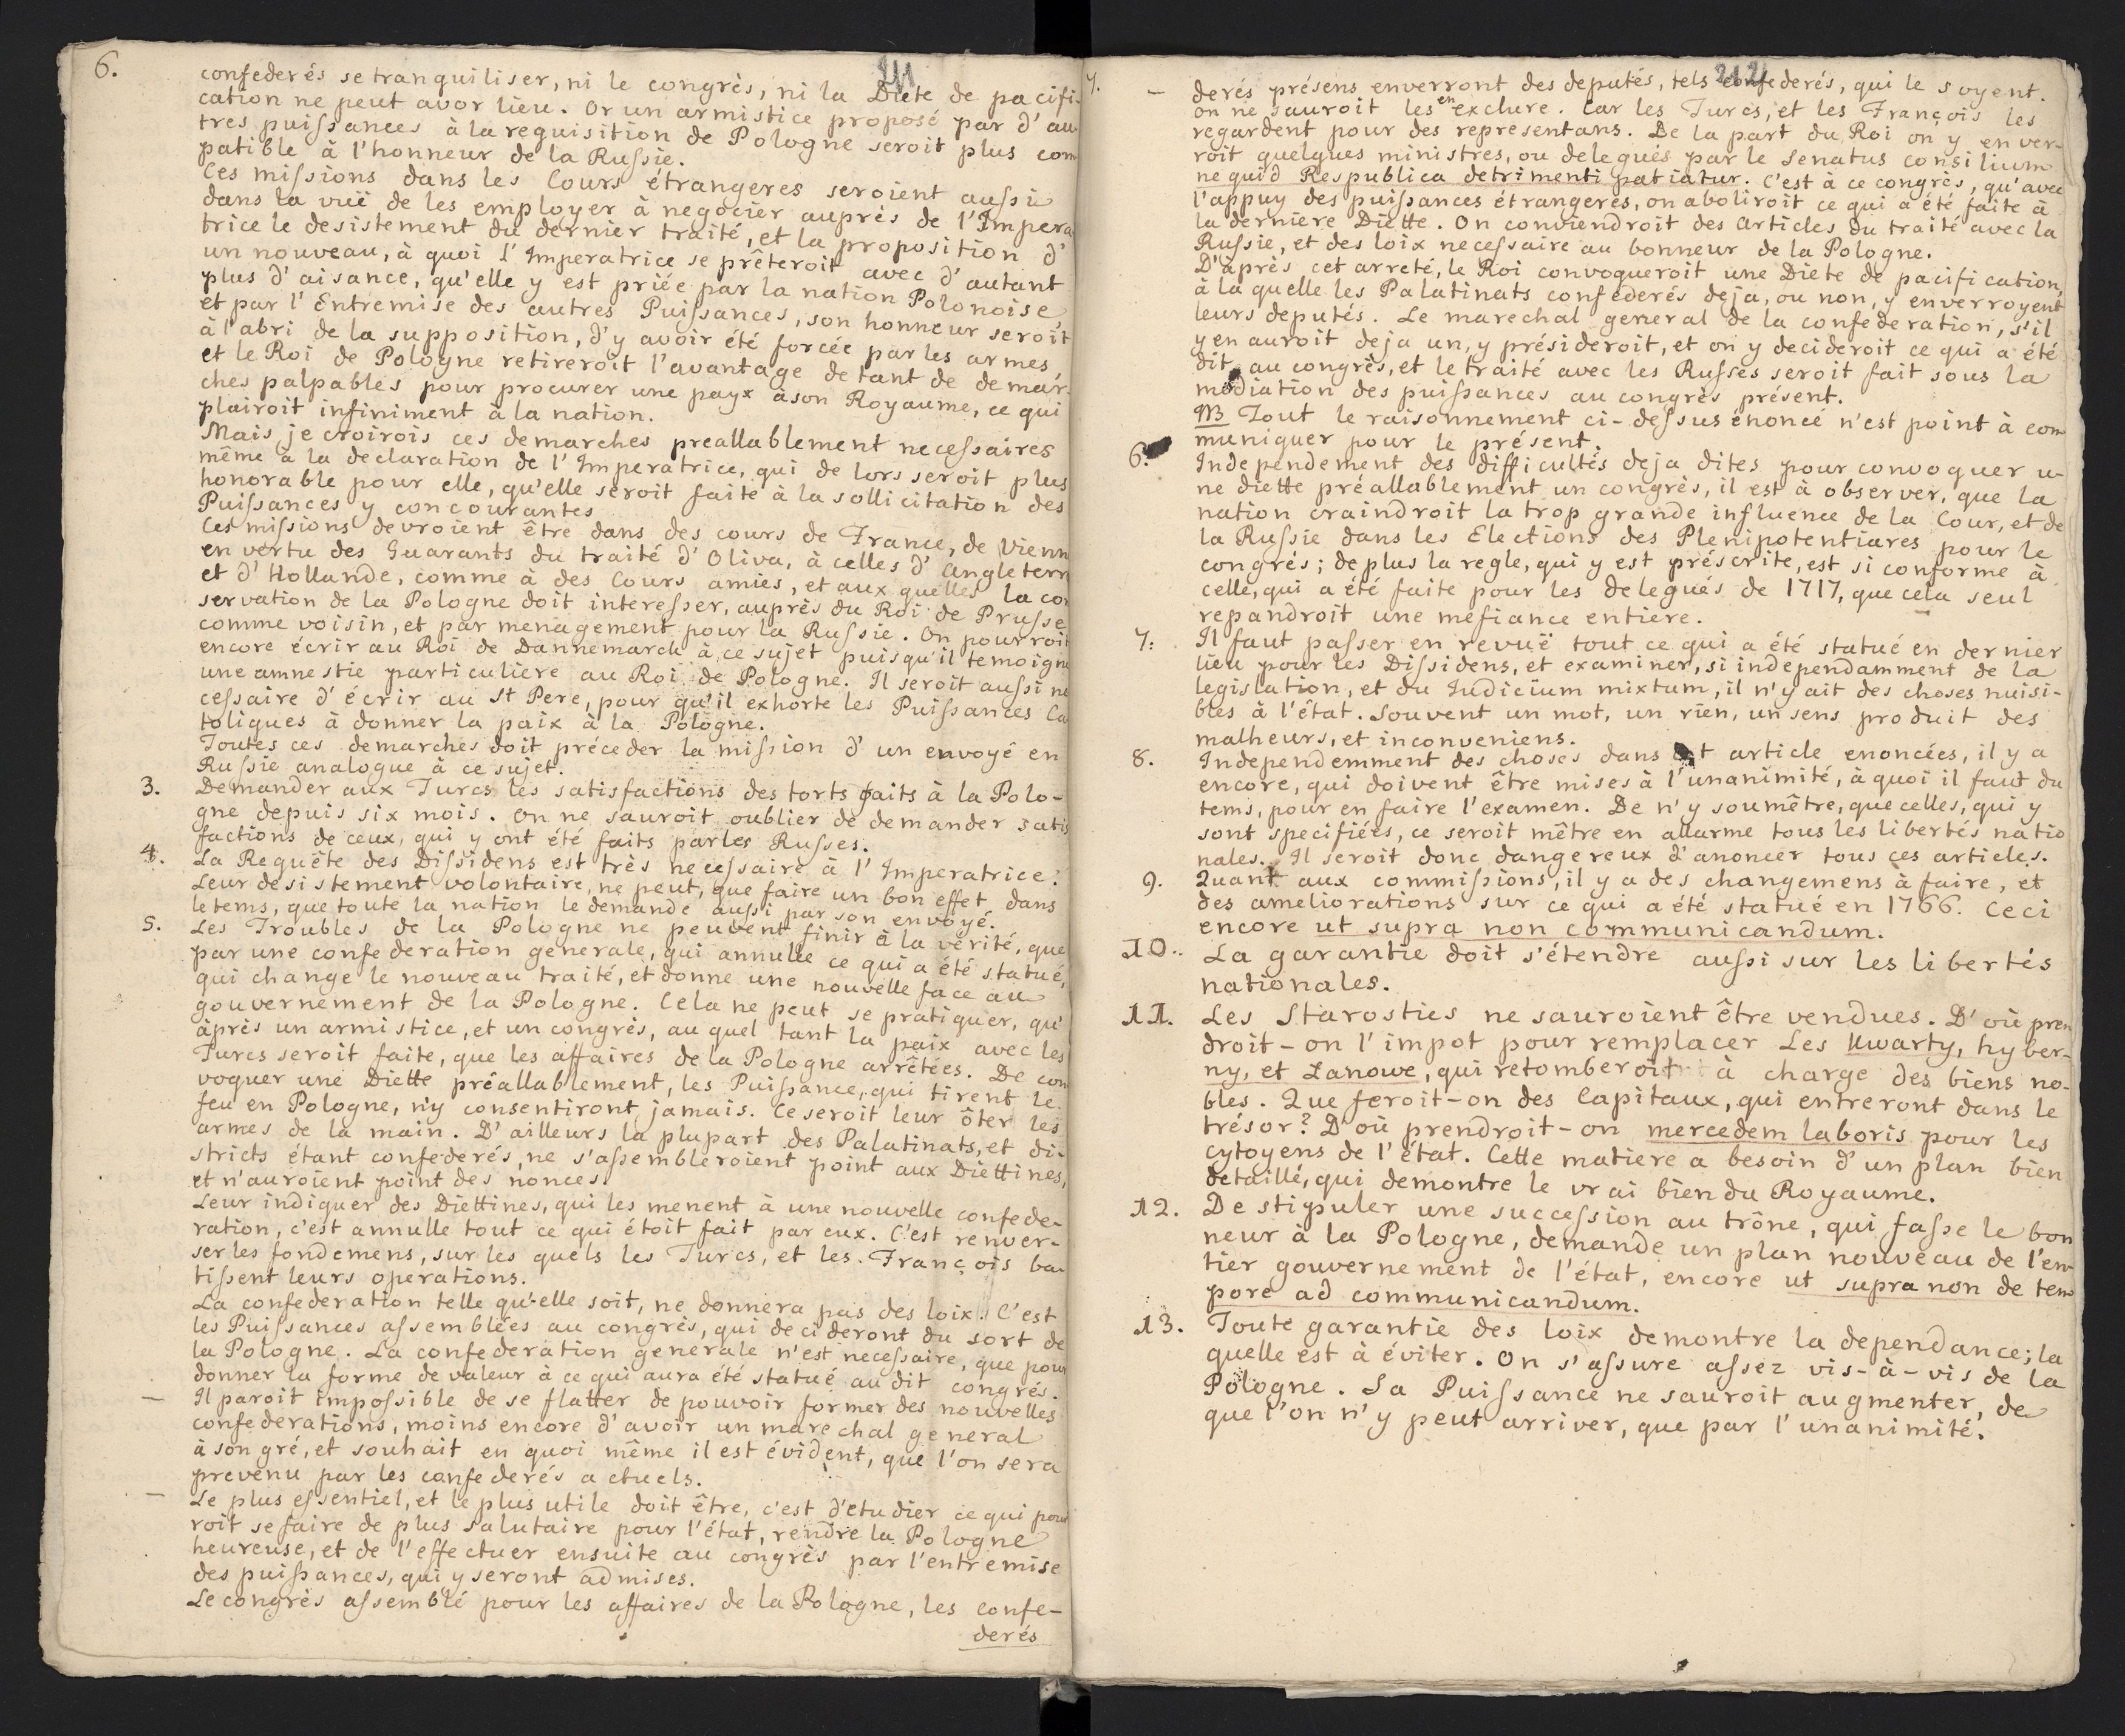 6.
211
confederés se tranquiliser, ni le congrès, ni la Diete de pacifi-
cation ne peut avor lieu. Or un armistice proposé par d'au
tres puissances à la requisition de Pologne seroit plus com
patible à l'honneur de la Russie.
Ces missions dans les Cours étrangeres seroient aussi
dans la vuë de les employer à negocier auprés de l'Impera
trice le desistement du dernier traité, et la proposition d'
un nouveau, à quoi l'Imperatrice se prêteroit avec d'autant
plus d'aisance, qu'elle y est priée par la nation Polonoise
et par l'Entremise des autres Puissances, son honneur seroit
à l'abri de la supposition, d'y avoir été forcée par les armes,
et le Roi de Pologne retireroit l'avantage de tant de demar-
ches palpables pour procurer une payx à son Royaume, ce qui
plairoit infiniment à la nation.
Mais je croirois ces demarches preallablement necessaires
même à la declaration de l'Imperatrice, qui de lors seroit plus
honorable pour elle, qu'elle seroit faite à la sollicitation des
Puissances y concourantes
Ces missions devroient être dans des cours de France, de Vienn
en vertu des Guarants du traité d'Oliva, à celles d'Angleterr
et d'Hollande, comme à des Cours amies, et aux quelles la con
servation de la Pologne doit interesser, auprès du Roi de Prusse
comme voisin, et par menagement pour la Russie. On pourroit
encore écrir au Roi de Dannemarck à ce sujet puisqu'il temoigne
une amnestie particuliere au Roi de Pologne. Il seroit aussi ne
cessaire d'écrir au St Pere, pour qu'il exhorte les Puissances Ca
toliques à donner la paix à la Pologne.
Toutes ces demarches doit préceder la mission d'un envoyé en
Russie analogue à ce sujet.
3. Demander aux Turcs les satisfactions des torts faits à la Polo-
gne depuis six mois. On ne sauroit oublier de demander satis
factions de ceux, qui y ont été faits par les Russes.
4. La Requête des Dissidens est très necessaire à l'Imperatrice.
Leur desistement volontaire, ne peut, que faire un bon effet, dans
le tems, que toute la nation le demande aussi par son envoyé.
5. Les Troubles de la Pologne ne peuvent finir à la vérité, que
par une confederation generale, qui annulle ce qui a été statué,
qui change le nouveau traité, et donne une nouvelle face au
gouvernement de la Pologne. Cela ne peut se pratiquer, qu'
après un armistice, et un congrès, au quel tant la paix avec les
Turcs seroit faite, que les affaires de la Pologne arrêtées. De con
voquer une Diette préallablement, les Puissance, qui tirent le
feu en Pologne, n'y consentiront jamais. Ce seroit leur ôter les
armes de la main. D'ailleurs la plupart des Palatinats, et di-
stricts étant confederés, ne s'assembleroient point aux Diettines,
et n'auroient point des nonces.
Leur indiquer des Diettines, qui les menent à une nouvelle confede-
ration, c'est annulle tout ce qui étoit fait par eux. C'est renver-
ser les fondemens, sur les quels les Turcs, et les François ba
tissent leurs operations.
La confederation telle qu'elle soit, ne donnera pas des loix. C'est
les Puissances assemblées au congrès, qui decideront du sort de
la Pologne. La confederation generale n'est necessaire, que pour
donner la forme de valeur à ce qui aura été statué au dit congrés.
— Il paroit impossible de se flatter de pouvoir former des nouvelles
confederations, moins encore d'avoir un marechal general
à son gré, et souhait en quoi même il est évident, que l'on sera
prevenu par les confederés actuels.
— Le plus essentiel, et le plus utile doit être, c'est d'etudier ce qui pour
roit se faire de plus salutaire pour l'état, rendre la Pologne
heureuse, et de l'effectuer ensuite au congrès par l'entremise
des puissances, qui y seront admises.
Le congrès assemblé pour les affaires de la Pologne, les confe-
derés
7.
212
— derés présens enverront des deputés, tels confederés, qui le soyent.
on ne sauroit les en exclure. Car les Turcs, et les François les
regardent pour des representans. De la part du Roi on y enver-
roit quelques ministres, ou delegués par le senatus consilium
ne quid Respublica detrimenti patiatur. C'est à ce congrès, qu'avec
l'appuy des puissances étrangeres, on aboliroit ce qui a été faite à
la derniere Diette. On conviendroit des articles du traité avec la
Russie, et des loix necessaire au bonneur de la Pologne.
D'après cet arreté, le Roi convoqueroit une Diete de pacification,
à la quelle les Palatinats confederés deja, ou non, y enverroyent
leurs deputés. Le marechal general de la confederation, s'il
y en auroit deja un, y présideroit, et on y decideroit ce qui a été
dit au congrès, et le traité avec les Russes seroit fait sous la
mediation des puissances au congrès présent.
NB Tout le raisonnement ci-dessus énoncé n'est point à com
muniquer pour le présent.
6. Independement des difficultés deja dites pour convoquer u-
ne diette préallablement un congrès, il est à observer, que la
nation craindroit la trop grande influence de la Cour, et de
la Russie dans les Elections des Plenipotentiares pour le
congrés; de plus la regle, qui y est préscrite, est si conforme à
celle, qui a été faite pour les delegués de 1717, que cela seul
repandroit une mefiance entiere.
7. Il faut passer en revuë tout ce qui a été statué en dernier
lieu pour les Dissidens, et examiner, si independamment de la
legislation, et du Iudicium mixtum, il n'y ait des choses nuisi-
bles à l'état. Souvent un mot, un rien, un sens produit des
malheurs, et inconveniens.
8. Independemment des choses dans cet article enoncées, il y a
encore, qui doivent être mises à l'unanimité, à quoi il faut du
tems, pour en faire l'examen. De n'y soumêtre, que celles, qui y
sont specifiées, ce seroit mêtre en allarme tous les libertés natio
nales. Il seroit donc dangereux d'anoncer tous ces articles.
9. Quant aux commissions, il y a des changemens à faire, et
des ameliorations sur ce qui a été statué en 1766. Ceci
encore ut supra non communicandum.
10. La garantie doit s'étendre aussi sur les libertés
nationales.
11. Les Starosties ne sauroient être vendues. D'où pren
droit-on l'impot pour remplacer Les Kwarty, hyber-
ny, et Lanowe, qui retomberoit à charge des biens no-
bles. Que feroit-on des Capitaux, qui entreront dans le
trésor? D'où prendroit-on mercedem laboris pour les
cytoyens de l'état. Cette matiere a besoin d'un plan bien
detaillé, qui demontre le vrai bien du Royaume.
12. De stipuler une succession au trône, qui fasse le bon
neur à la Pologne, demande un plan nouveau de l'en
tier gouvernement de l'état, encore ut supra non de tem
pore ad communicandum.
13. Toute garantie des loix demontre la dependance; la
quelle est à éviter. On s'assure assez vis-à-vis de la
Pologne. Sa Puissance ne sauroit augmenter, de
que l'on n'y peut arriver, que par l'unanimité.